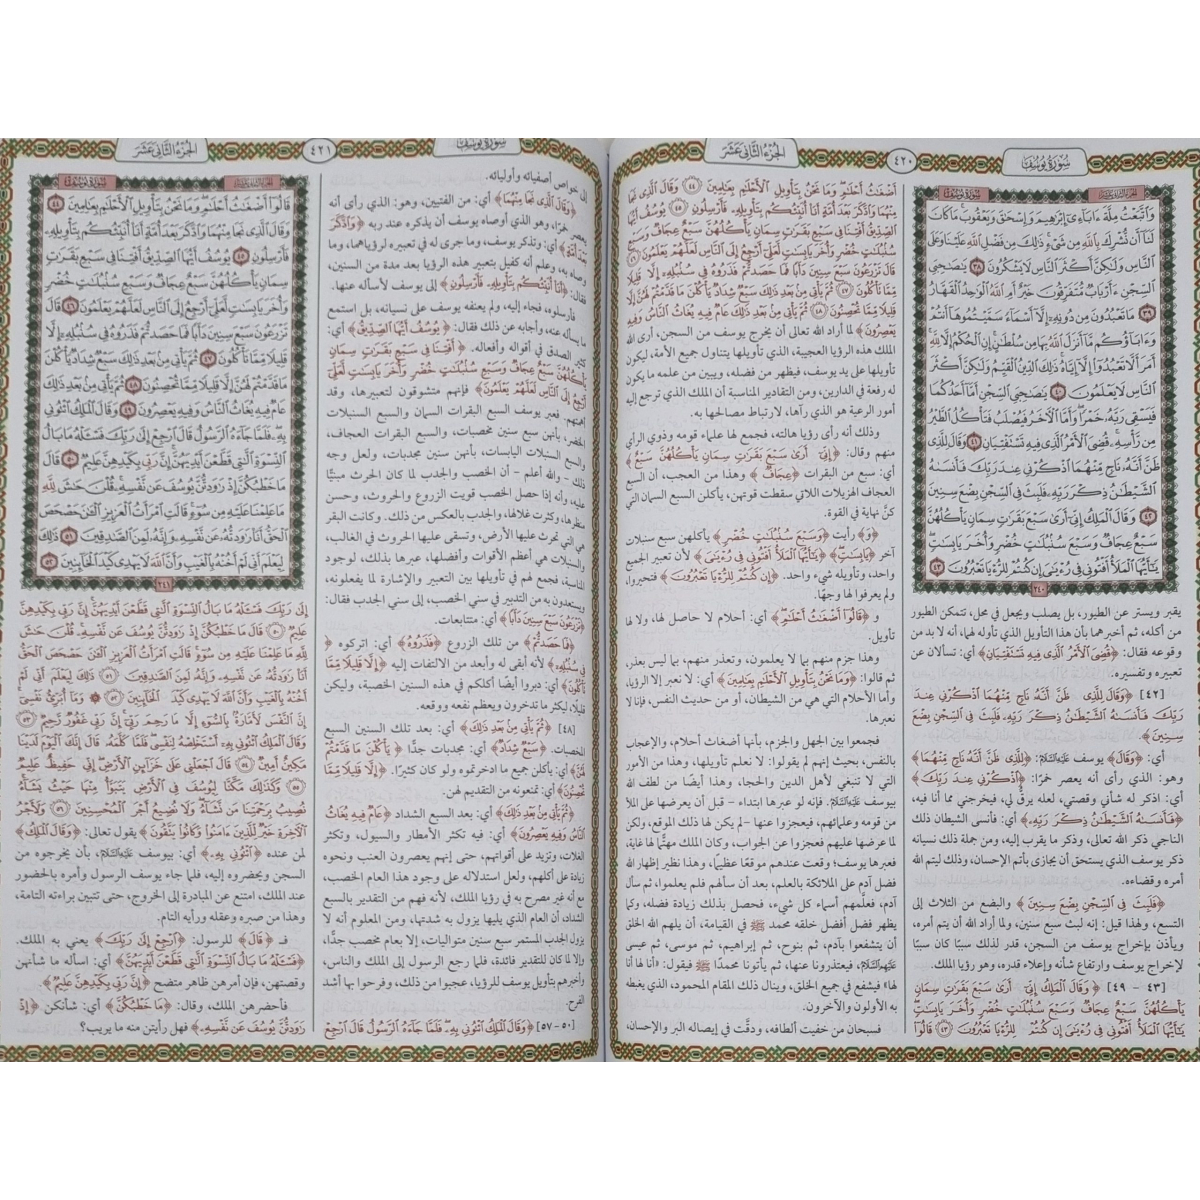 سورة يوسف
٤٢٠
الجزء الثاني عشر
وَاتَّبَعْتُ مِلَّةَ ءَابَآءِيٓ إِبْرَٰهِيمَ وَإِسْحَٰقَ وَيَعْقُوبَ مَا كَانَ
لَنَآ أَن نُّشْرِكَ بِاللَّهِ مِن شَيْءٍ ذَٰلِكَ مِن فَضْلِ اللَّهِ عَلَيْنَا وَعَلَى
النَّاسِ وَلَٰكِنَّ أَكْثَرَ النَّاسِ لَا يَشْكُرُونَ ٣٨ يَٰصَٰحِبَيِ
السِّجْنِ ءَأَرْبَابٌ مُّتَفَرِّقُونَ خَيْرٌ أَمِ اللَّهُ الْوَٰحِدُ الْقَهَّارُ
٣٩ مَا تَعْبُدُونَ مِن دُونِهِ إِلَّآ أَسْمَآءً سَمَّيْتُمُوهَآ أَنتُمْ
وَءَابَآؤُكُم مَّآ أَنزَلَ اللَّهُ بِهَا مِن سُلْطَٰنٍ إِنِ الْحُكْمُ إِلَّا لِلَّهِ
أَمَرَ أَلَّا تَعْبُدُوٓا إِلَّآ إِيَّاهُ ذَٰلِكَ الدِّينُ الْقَيِّمُ وَلَٰكِنَّ أَكْثَرَ
النَّاسِ لَا يَعْلَمُونَ ٤٠ يَٰصَٰحِبَيِ السِّجْنِ أَمَّآ أَحَدُكُمَا
فَيَسْقِي رَبَّهُ خَمْرًا وَأَمَّا الْآخَرُ فَيُصْلَبُ فَتَأْكُلُ الطَّيْرُ
مِن رَّأْسِهِ قُضِيَ الْأَمْرُ الَّذِي فِيهِ تَسْتَفْتِيَانِ ٤١ وَقَالَ لِلَّذِي
ظَنَّ أَنَّهُ نَاجٍ مِّنْهُمَا اذْكُرْنِي عِندَ رَبِّكَ فَأَنسَىٰهُ
الشَّيْطَٰنُ ذِكْرَ رَبِّهِ فَلَبِثَ فِي السِّجْنِ بِضْعَ سِنِينَ
٤٢ وَقَالَ الْمَلِكُ إِنِّيٓ أَرَىٰ سَبْعَ بَقَرَٰتٍ سِمَانٍ يَأْكُلُهُنَّ
سَبْعٌ عِجَافٌ وَسَبْعَ سُنبُلَٰتٍ خُضْرٍ وَأُخَرَ يَابِسَٰتٍ
يَٰٓأَيُّهَا الْمَلَأُ أَفْتُونِي فِي رُءْيَٰيَ إِن كُنتُمْ لِلرُّءْيَا تَعْبُرُونَ ٤٣
٢٤٠
يقبر ويستر عن الطيور، بل يصلب ويجعل في محل، تتمكن الطيور
من أكله، ثم أخبرهما بأن هذا التأويل الذي تأوله لهما، أنه لا بد من
وقوعه فقال: ﴿قُضِيَ الْأَمْرُ الَّذِي فِيهِ تَسْتَفْتِيَانِ﴾ أي: تسألان عن
تعبيره وتفسيره.
[٤٢] ﴿وَقَالَ لِلَّذِي ظَنَّ أَنَّهُ نَاجٍ مِّنْهُمَا اذْكُرْنِي عِندَ
رَبِّكَ فَأَنسَىٰهُ الشَّيْطَٰنُ ذِكْرَ رَبِّهِ فَلَبِثَ فِي السِّجْنِ بِضْعَ
سِنِينَ﴾.
أي: ﴿وَقَالَ﴾ يوسف عليه السلام: ﴿لِلَّذِي ظَنَّ أَنَّهُ نَاجٍ مِّنْهُمَا﴾
وهو: الذي رأى أنه يعصر خمرًا: ﴿اذْكُرْنِي عِندَ رَبِّكَ﴾
أي: اذكر له شأني وقصتي، لعله يرقُّ لي، فيخرجني مما أنا فيه،
﴿فَأَنسَىٰهُ الشَّيْطَٰنُ ذِكْرَ رَبِّهِ﴾ أي: فأنسى الشيطان ذلك
الناجي ذكر الله تعالى، وذكر ما يقرب إليه، ومن جملة ذلك نسيانه
ذكر يوسف الذي يستحق أن يجازى بأتم الإحسان، وذلك ليتم الله
أمره وقضاءه.
﴿فَلَبِثَ فِي السِّجْنِ بِضْعَ سِنِينَ﴾ والبضع من الثلاث إلى
التسع، ولهذا قيل: إنه لبث سبع سنين، ولما أراد الله أن يتم أمره،
ويأذن بإخراج يوسف من السجن، قدر لذلك سببًا كان سببًا
لإخراج يوسف وارتفاع شأنه وإعلاء قدره، وهو رؤيا الملك.
[٤٣ - ٤٩] ﴿وَقَالَ الْمَلِكُ إِنِّيٓ أَرَىٰ سَبْعَ بَقَرَٰتٍ سِمَانٍ
يَأْكُلُهُنَّ سَبْعٌ عِجَافٌ وَسَبْعَ سُنبُلَٰتٍ خُضْرٍ وَأُخَرَ يَابِسَٰتٍ
يَٰٓأَيُّهَا الْمَلَأُ أَفْتُونِي فِي رُءْيَٰيَ إِن كُنتُمْ لِلرُّءْيَا تَعْبُرُونَ ٤٣ قَالُوٓا
أَضْغَٰثُ أَحْلَٰمٍ وَمَا نَحْنُ بِتَأْوِيلِ الْأَحْلَٰمِ بِعَٰلِمِينَ ٤٤ وَقَالَ الَّذِي نَجَا
مِنْهُمَا وَادَّكَرَ بَعْدَ أُمَّةٍ أَنَا۠ أُنَبِّئُكُم بِتَأْوِيلِهِ فَأَرْسِلُونِ ٤٥ يُوسُفُ أَيُّهَا
الصِّدِّيقُ أَفْتِنَا فِي سَبْعِ بَقَرَٰتٍ سِمَانٍ يَأْكُلُهُنَّ سَبْعٌ عِجَافٌ وَسَبْعِ
سُنبُلَٰتٍ خُضْرٍ وَأُخَرَ يَابِسَٰتٍ لَّعَلِّيٓ أَرْجِعُ إِلَى النَّاسِ لَعَلَّهُمْ يَعْلَمُونَ ٤٦
قَالَ تَزْرَعُونَ سَبْعَ سِنِينَ دَأَبًا فَمَا حَصَدتُّمْ فَذَرُوهُ فِي سُنبُلِهِ إِلَّا قَلِيلًا
مِّمَّا تَأْكُلُونَ ٤٧ ثُمَّ يَأْتِي مِن بَعْدِ ذَٰلِكَ سَبْعٌ شِدَادٌ يَأْكُلْنَ مَا قَدَّمْتُمْ لَهُنَّ إِلَّا قَلِيلًا
مِّمَّا تُحْصِنُونَ ٤٨ ثُمَّ يَأْتِي مِن بَعْدِ ذَٰلِكَ عَامٌ فِيهِ يُغَاثُ النَّاسُ وَفِيهِ
يَعْصِرُونَ﴾ لما أراد الله تعالى أن يخرج يوسف من السجن، أرى الله
الملك هذه الرؤيا العجيبة، الذي تأويلها يتناول جميع الأمة، ليكون
تأويلها على يد يوسف، فيظهر من فضله، ويبين من علمه ما يكون
له رفعة في الدارين، ومن التقادير المناسبة أن الملك الذي ترجع إليه
أمور الرعية هو الذي رآها، لارتباط مصالحها به.
وذلك أنه رأى رؤيا هالته، فجمع لها علماء قومه وذوي الرأي
منهم وقال: ﴿إِنِّيٓ أَرَىٰ سَبْعَ بَقَرَٰتٍ سِمَانٍ يَأْكُلُهُنَّ سَبْعٌ﴾
أي: سبع من البقرات ﴿عِجَافٌ﴾ وهذا من العجب، أن السبع
العجاف الهزيلات اللاتي سقطت قوتهن، يأكلن السبع السمان التي
كنَّ نهاية في القوة.
﴿وَ﴾ رأيت ﴿وَسَبْعَ سُنبُلَٰتٍ خُضْرٍ﴾ يأكلهن سبع سنبلات
آخر ﴿يَابِسَٰتٍ﴾ ﴿يَٰٓأَيُّهَا الْمَلَأُ أَفْتُونِي فِي رُءْيَٰيَ﴾ لأن تعبير الجميع
واحد، وتأويله شيء واحد. ﴿إِن كُنتُمْ لِلرُّءْيَا تَعْبُرُونَ﴾ فتحيروا،
ولم يعرفوا لها وجهًا.
و ﴿قَالُوٓا أَضْغَٰثُ أَحْلَٰمٍ﴾ أي: أحلام لا حاصل لها، ولا لها
تأويل.
وهذا جزم منهم بما لا يعلمون، وتعذر منهم، بما ليس بعذر،
ثم قالوا: ﴿وَمَا نَحْنُ بِتَأْوِيلِ الْأَحْلَٰمِ بِعَٰلِمِينَ﴾ أي: لا نعبر إلا الرؤيا،
وأما الأحلام التي هي من الشيطان، أو من حديث النفس، فإنا لا
نعبرها.
فجمعوا بين الجهل والجزم، بأنها أضغاث أحلام، والإعجاب
بالنفس، بحيث إنهم لم يقولوا: لا نعلم تأويلها، وهذا من الأمور
التي لا تنبغي لأهل الدين والحجا، وهذا أيضًا من لطف الله
بيوسف عليه السلام. فإنه لو عبرها ابتداء - قبل أن يعرضها على الملأ
من قومه وعلمائهم، فيعجزوا عنها - لم يكن لها ذلك الموقع، ولكن
لما عرضها عليهم فعجزوا عن الجواب، وكان الملك مهتمًّا لها غاية،
فعبرها يوسف؛ وقعت عندهم موقعًا عظيمًا، وهذا نظير إظهار الله
فضل آدم على الملائكة بالعلم، بعد أن سألهم فلم يعلموا، ثم سأل
آدم، فعلَّمهم أسماء كل شيء، فحصل بذلك زيادة فضله، وكما
يظهر فضل أفضل خلقه محمد ﷺ في القيامة، أن يلهم الله الخلق
أن يتشفعوا بآدم، ثم بنوح، ثم إبراهيم، ثم موسى، ثم عيسى
عليه السلام، فيعتذرونا عنها، ثم يأتونا محمدًا ﷺ فيقول: «أنا لها أنا
لها» فيشفع في جميع الخلق، وينال ذلك المقام المحمود، الذي يغبطه
به الأولون والآخرون.
فسبحان من خفيت ألطافه، ودقَّت في إيصاله البر والإحسان،
سورة يوسف
٤٢١
الجزء الثاني عشر
إلى خواص أصفيائه وأوليائه.
﴿وَقَالَ الَّذِي نَجَا مِنْهُمَا﴾ أي: من الفتيين، وهو: الذي رأى أنه
يعصر خمرًا، وهو الذي أوصاه يوسف أن يذكره عند ربه ﴿وَادَّكَرَ
بَعْدَ أُمَّةٍ﴾ أي: وتذكر يوسف، وما جرى له في تعبيره لرؤياهما، وما
وصاه به، وعلم أنه كفيل بتعبير هذه الرؤيا بعد مدة من السنين،
فقال: ﴿أَنَا۠ أُنَبِّئُكُم بِتَأْوِيلِهِ فَأَرْسِلُونِ﴾ إلى يوسف لأسأله عنها.
فأرسلوه، فجاء إليه، ولم يعنفه يوسف على نسيانه، بل استمع
ما يسأله عنه، وأجابه عن ذلك فقال: ﴿يُوسُفُ أَيُّهَا الصِّدِّيقُ﴾ أي:
كثير الصدق في أقواله وأفعاله. ﴿أَفْتِنَا فِي سَبْعِ بَقَرَٰتٍ سِمَانٍ
يَأْكُلُهُنَّ سَبْعٌ عِجَافٌ وَسَبْعِ سُنبُلَٰتٍ خُضْرٍ وَأُخَرَ يَابِسَٰتٍ لَّعَلِّيٓ
أَرْجِعُ إِلَى النَّاسِ لَعَلَّهُمْ يَعْلَمُونَ﴾ فإنهم متشوقون لتعبيرها، وقد
أهمتهم.
فعبر يوسف السبع البقرات السمان والسبع السنبلات
الخضر، بأنهن سبع سنين مخصبات، والسبع البقرات العجاف،
والسبع السنبلات اليابسات، بأنهن سنين مجدبات، ولعل وجه
ذلك - والله أعلم - أن الخصب والجدب لما كان الحرث مبنيًّا
عليه، وأنه إذا حصل الخصب قويت الزروع والحروث، وحسن
منظرها، وكثرت غلالها، والجدب بالعكس من ذلك. وكانت البقر
هي التي تحرث عليها الأرض، وتسقى عليها الحروث في الغالب،
والسنبلات هي أعظم الأقوات وأفضلها، عبرها بذلك، لوجود
المناسبة، فجمع لهم في تأويلها بين التعبير والإشارة لما يفعلونه،
ويستعدون به من التدبير في سني الخصب، إلى سني الجدب فقال:
﴿تَزْرَعُونَ سَبْعَ سِنِينَ دَأَبًا﴾ أي: متتابعات.
﴿فَمَا حَصَدتُّمْ﴾ من تلك الزروع ﴿فَذَرُوهُ﴾ أي: اتركوه ﴿
فِي سُنبُلِهِ﴾ لأنه أبقى له وأبعد من الالتفات إليه ﴿إِلَّا قَلِيلًا مِّمَّا
تَأْكُلُونَ﴾ أي: دبروا أيضًا أكلكم في هذه السنين الخصبة، وليكن
قليلًا، ليكثر ما تدخرون ويعظم نفعه ووقعه.
[٤٨] ﴿ثُمَّ يَأْتِي مِن بَعْدِ ذَٰلِكَ﴾ أي: بعد تلك السنين السبع
المخصبات. ﴿سَبْعٌ شِدَادٌ﴾ أي: مجدبات جدًّا ﴿يَأْكُلْنَ مَا قَدَّمْتُمْ
لَهُنَّ﴾ أي: يأكلن جميع ما ادخرتموه ولو كان كثيرًا. ﴿إِلَّا قَلِيلًا مِّمَّا
تُحْصِنُونَ﴾ أي: تمنعونه من التقديم لهن.
﴿ثُمَّ يَأْتِي مِن بَعْدِ ذَٰلِكَ﴾ أي: بعد السبع الشداد ﴿عَامٌ فِيهِ يُغَاثُ
النَّاسُ وَفِيهِ يَعْصِرُونَ﴾ أي: فيه تكثر الأمطار والسيول، وتكثر
الغلات، وتزيد على أقواتهم، حتى إنهم يعصرون العنب ونحوه
زيادة على أكلهم، ولعل استدلاله على وجود هذا العام الخصب،
مع أنه غير مصرح به في رؤيا الملك، لأنه فهم من التقدير بالسبع
الشداد، أن العام الذي يليها يزول به شدتها، ومن المعلوم أنه لا
يزول الجدب المستمر سبع سنين متواليات، إلا بعام مخصب جدًّا،
وإلا لما كان للتقدير فائدة، فلما رجع الرسول إلى الملك والناس،
وأخبرهم بتأويل يوسف للرؤيا، عجبوا من ذلك، وفرحوا بها أشد
الفرح.
[٥٠ - ٥٧] ﴿وَقَالَ الْمَلِكُ ائْتُونِي بِهِ فَلَمَّا جَآءَهُ الرَّسُولُ قَالَ ارْجِعْ
قَالُوٓا أَضْغَٰثُ أَحْلَٰمٍ وَمَا نَحْنُ بِتَأْوِيلِ الْأَحْلَٰمِ بِعَٰلِمِينَ ٤٤
وَقَالَ الَّذِي نَجَا مِنْهُمَا وَادَّكَرَ بَعْدَ أُمَّةٍ أَنَا۠ أُنَبِّئُكُم بِتَأْوِيلِهِ
فَأَرْسِلُونِ ٤٥ يُوسُفُ أَيُّهَا الصِّدِّيقُ أَفْتِنَا فِي سَبْعِ بَقَرَٰتٍ
سِمَانٍ يَأْكُلُهُنَّ سَبْعٌ عِجَافٌ وَسَبْعِ سُنبُلَٰتٍ خُضْرٍ
وَأُخَرَ يَابِسَٰتٍ لَّعَلِّيٓ أَرْجِعُ إِلَى النَّاسِ لَعَلَّهُمْ يَعْلَمُونَ ٤٦ قَالَ
تَزْرَعُونَ سَبْعَ سِنِينَ دَأَبًا فَمَا حَصَدتُّمْ فَذَرُوهُ فِي سُنبُلِهِ إِلَّا
قَلِيلًا مِّمَّا تَأْكُلُونَ ٤٧ ثُمَّ يَأْتِي مِن بَعْدِ ذَٰلِكَ سَبْعٌ شِدَادٌ يَأْكُلْنَ
مَا قَدَّمْتُمْ لَهُنَّ إِلَّا قَلِيلًا مِّمَّا تُحْصِنُونَ ٤٨ ثُمَّ يَأْتِي مِن بَعْدِ ذَٰلِكَ
عَامٌ فِيهِ يُغَاثُ النَّاسُ وَفِيهِ يَعْصِرُونَ ٤٩ وَقَالَ الْمَلِكُ ائْتُونِي
بِهِ فَلَمَّا جَآءَهُ الرَّسُولُ قَالَ ارْجِعْ إِلَىٰ رَبِّكَ فَسْـَٔلْهُ مَا بَالُ
النِّسْوَةِ الَّٰتِي قَطَّعْنَ أَيْدِيَهُنَّ إِنَّ رَبِّي بِكَيْدِهِنَّ عَلِيمٌ ٥٠ قَالَ
مَا خَطْبُكُنَّ إِذْ رَٰوَدتُّنَّ يُوسُفَ عَن نَّفْسِهِ قُلْنَ حَٰشَ لِلَّهِ
مَا عَلِمْنَا عَلَيْهِ مِن سُوٓءٍ قَالَتِ امْرَأَتُ الْعَزِيزِ الْـَٰٔنَ حَصْحَصَ
الْحَقُّ أَنَا۠ رَٰوَدتُّهُ عَن نَّفْسِهِ وَإِنَّهُ لَمِنَ الصَّٰدِقِينَ ٥١ ذَٰلِكَ
لِيَعْلَمَ أَنِّي لَمْ أَخُنْهُ بِالْغَيْبِ وَأَنَّ اللَّهَ لَا يَهْدِي كَيْدَ الْخَآئِنِينَ ٥٢
٢٤١
إِلَىٰ رَبِّكَ فَسْـَٔلْهُ مَا بَالُ النِّسْوَةِ الَّٰتِي قَطَّعْنَ أَيْدِيَهُنَّ إِنَّ رَبِّي بِكَيْدِهِنَّ
عَلِيمٌ ٥٠ قَالَ مَا خَطْبُكُنَّ إِذْ رَٰوَدتُّنَّ يُوسُفَ عَن نَّفْسِهِ قُلْنَ حَٰشَ
لِلَّهِ مَا عَلِمْنَا عَلَيْهِ مِن سُوٓءٍ قَالَتِ امْرَأَتُ الْعَزِيزِ الْـَٰٔنَ حَصْحَصَ الْحَقُّ
أَنَا۠ رَٰوَدتُّهُ عَن نَّفْسِهِ وَإِنَّهُ لَمِنَ الصَّٰدِقِينَ ٥١ ذَٰلِكَ لِيَعْلَمَ أَنِّي لَمْ
أَخُنْهُ بِالْغَيْبِ وَأَنَّ اللَّهَ لَا يَهْدِي كَيْدَ الْخَآئِنِينَ ٥٢ ۞ وَمَآ أُبَرِّئُ نَفْسِيٓ
إِنَّ النَّفْسَ لَأَمَّارَةٌ بِالسُّوٓءِ إِلَّا مَا رَحِمَ رَبِّيٓ إِنَّ رَبِّي غَفُورٌ رَّحِيمٌ ٥٣
وَقَالَ الْمَلِكُ ائْتُونِي بِهِ أَسْتَخْلِصْهُ لِنَفْسِي فَلَمَّا كَلَّمَهُ قَالَ إِنَّكَ الْيَوْمَ لَدَيْنَا
مَكِينٌ أَمِينٌ ٥٤ قَالَ اجْعَلْنِي عَلَىٰ خَزَآئِنِ الْأَرْضِ إِنِّي حَفِيظٌ عَلِيمٌ
٥٥ وَكَذَٰلِكَ مَكَّنَّا لِيُوسُفَ فِي الْأَرْضِ يَتَبَوَّأُ مِنْهَا حَيْثُ يَشَآءُ
نُصِيبُ بِرَحْمَتِنَا مَن نَّشَآءُ وَلَا نُضِيعُ أَجْرَ الْمُحْسِنِينَ ٥٦ وَلَأَجْرُ
الْآخِرَةِ خَيْرٌ لِّلَّذِينَ ءَامَنُوا وَكَانُوا يَتَّقُونَ﴾ يقول تعالى: ﴿وَقَالَ الْمَلِكُ﴾
لمن عنده ﴿ائْتُونِي بِهِ﴾ أي: بيوسف عليه السلام، بأن يخرجوه من
السجن ويحضروه إليه، فلما جاء يوسف الرسول وأمره بالحضور
عند الملك، امتنع عن المبادرة إلى الخروج، حتى تتبين براءته التامة،
وهذا من صبره وعقله ورأيه التام.
فـ ﴿قَالَ﴾ للرسول: ﴿ارْجِعْ إِلَىٰ رَبِّكَ﴾ يعني به الملك.
﴿فَسْـَٔلْهُ مَا بَالُ النِّسْوَةِ الَّٰتِي قَطَّعْنَ أَيْدِيَهُنَّ﴾ أي: اسأله ما شأنهن
وقصتهن، فإن أمرهن ظاهر متضح ﴿إِنَّ رَبِّي بِكَيْدِهِنَّ عَلِيمٌ﴾.
فأحضرهن الملك، وقال: ﴿مَا خَطْبُكُنَّ﴾ أي: شأنكن ﴿إِذْ
رَٰوَدتُّنَّ يُوسُفَ عَن نَّفْسِهِ﴾ فهل رأيتن منه ما يريب؟